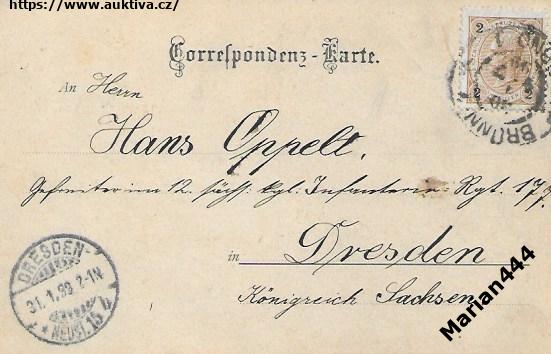 https://www.auktiva.cz/
Correspondenz-Karte.
An Herrn
Hans Oppelt,
Gefreiter im 12. sächs: kgl. Infanterie: Rgt. 177
in Dresden
Königreich Sachsen
2
2 2
BRÜNN
DRESDEN-
31.1.99. 2-1N
* NEUST. 15 b
Marian444